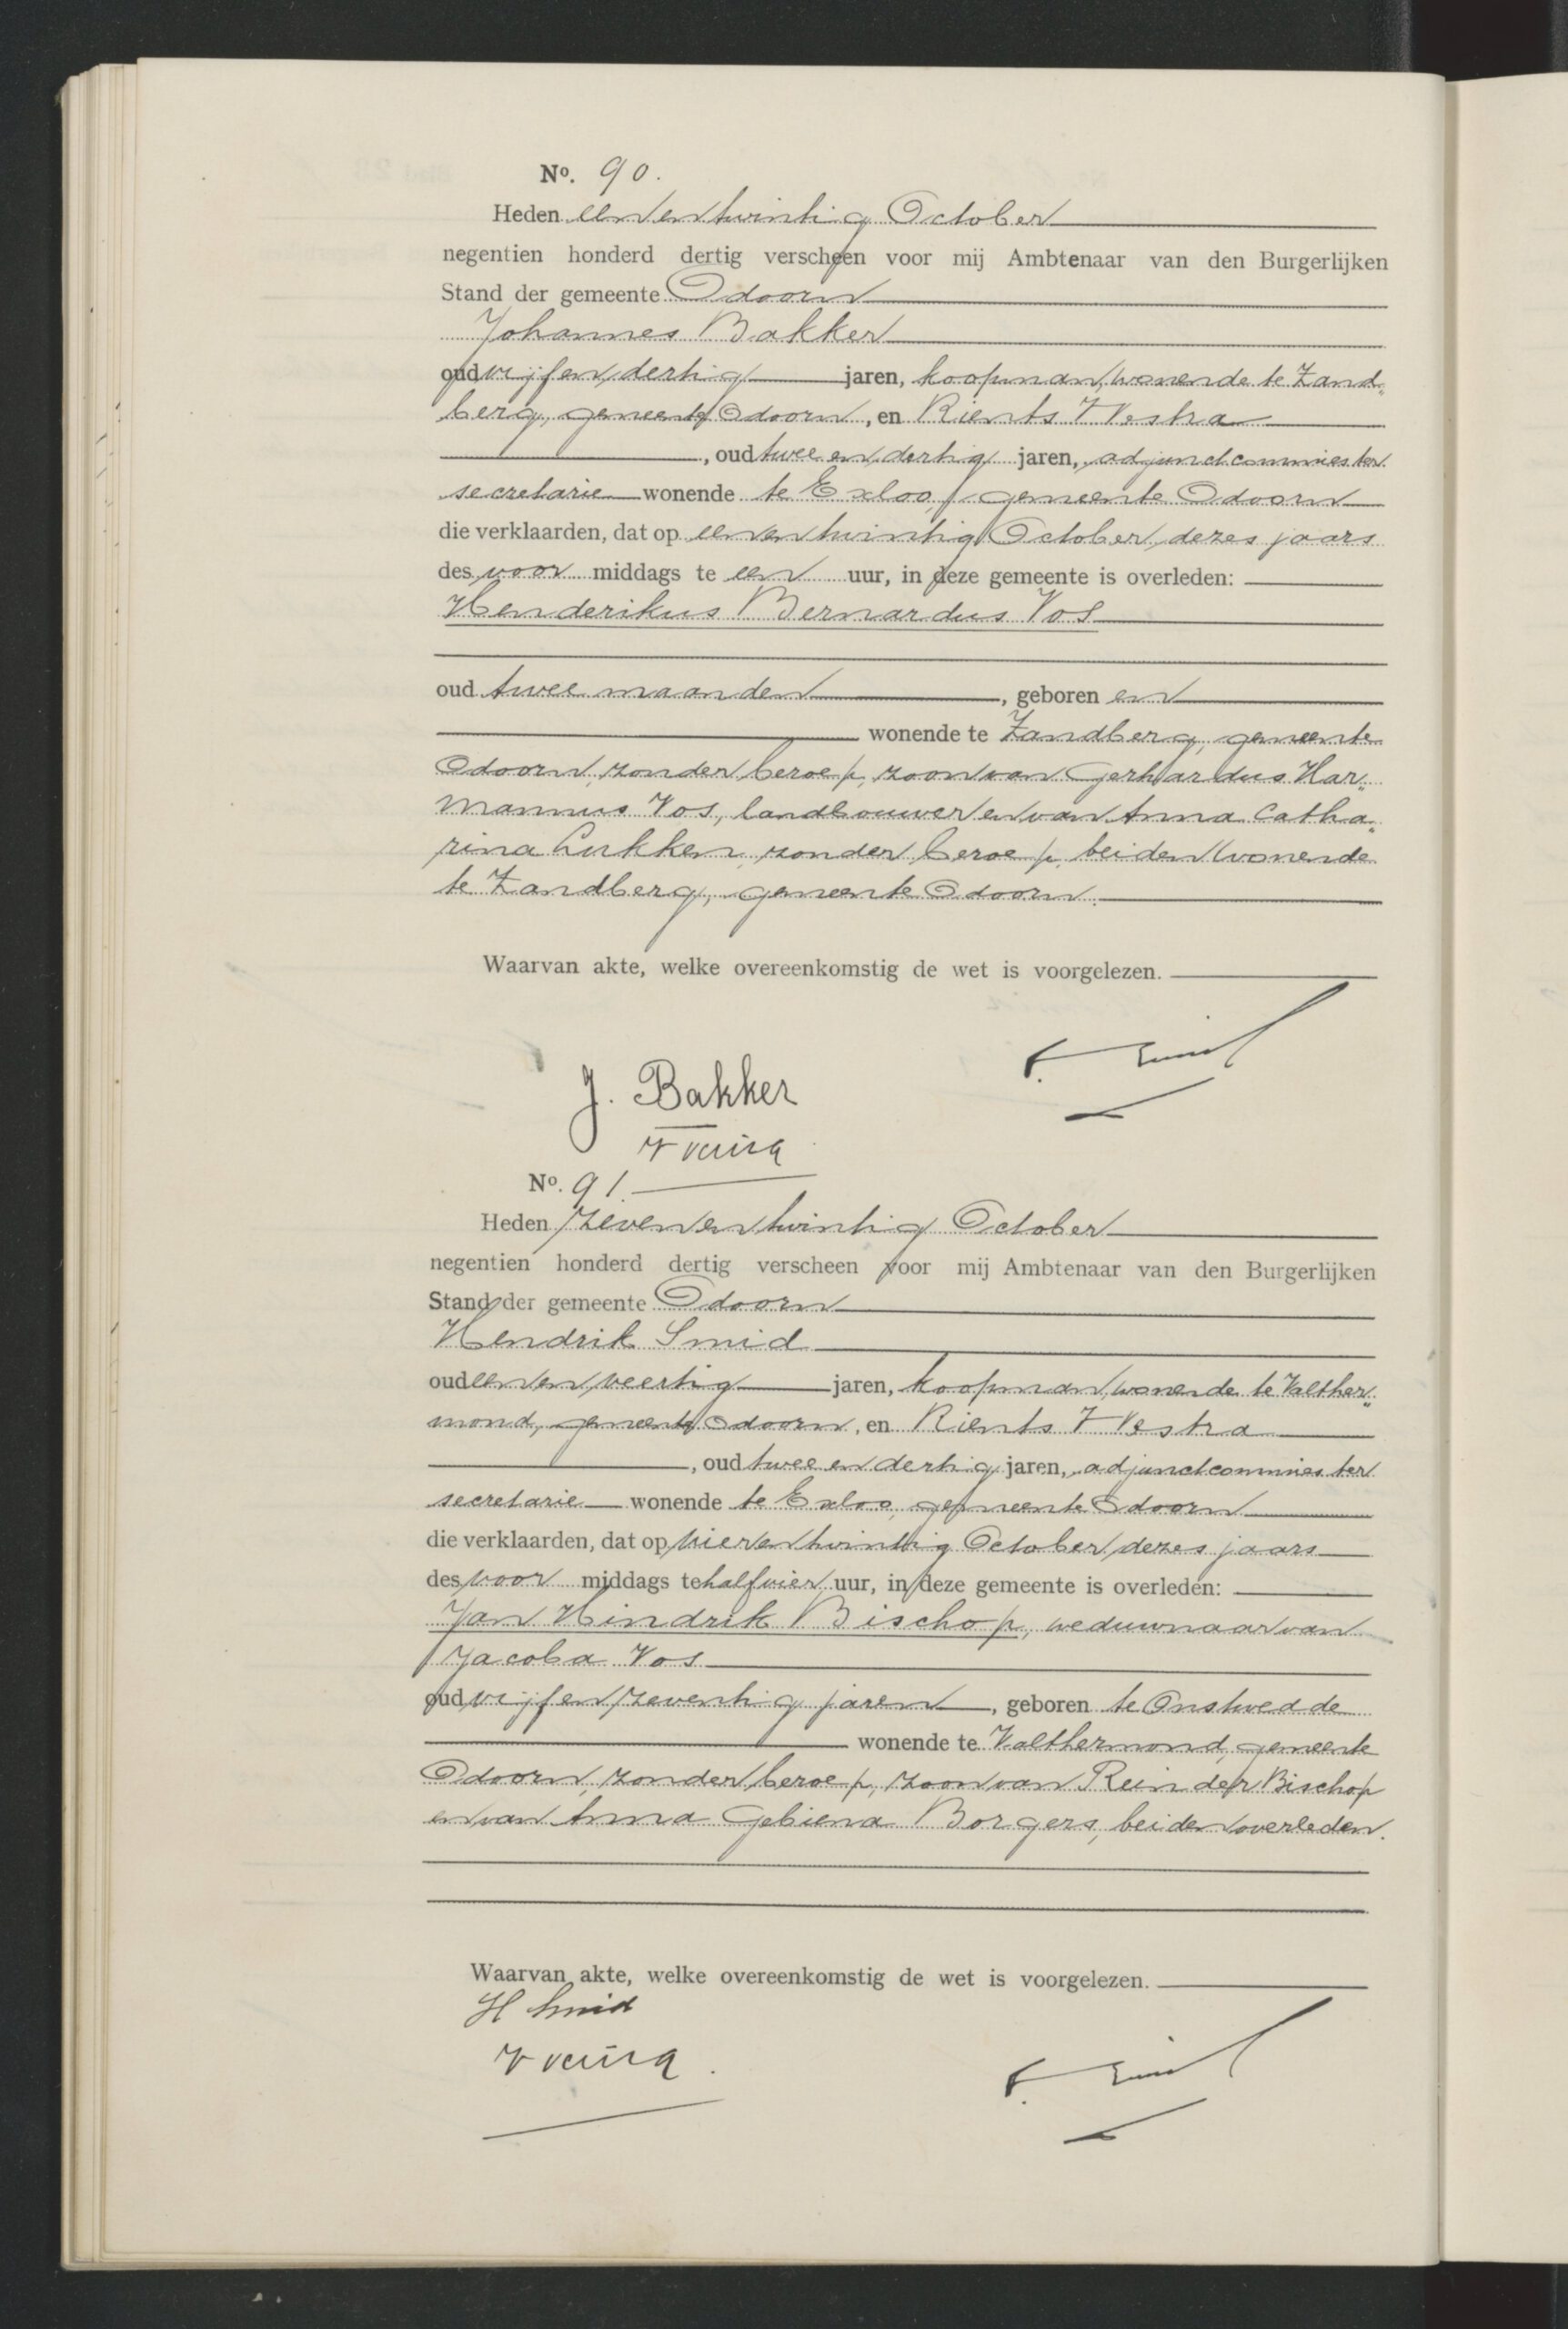 No. 90.
Heden eenentwintig October
negentien honderd dertig verscheen voor mij Ambtenaar van den Burgerlijken
Stand der gemeente Odoorn
Johannes Bakker
oud vijfendertig jaren, koopman, wonende te Zand„
berg, gemeente Odoorn, en Rients Westra
, oud tweeendertig jaren, adjunctcommies ter
secretarie wonende te Exloo, gemeente Odoorn
die verklaarden, dat op eenentwintig October dezes jaars
des voor middags te een uur, in deze gemeente is overleden:
Henderikus Bernardus Vos
oud twee maanden, geboren en
wonende te Zandberg, gemeente
Odoorn, zonder beroep, zoon van Gerhardus Har„
mannus Vos, landbouwer en van Anna Catha„
rina Lukken, zonder beroep, beiden wonende
te Zandberg, gemeente Odoorn.
Waarvan akte, welke overeenkomstig de wet is voorgelezen.
J. Bakker
No. 91.
Heden zevenentwintig October
negentien honderd dertig verscheen voor mij Ambtenaar van den Burgerlijken
Stand der gemeente Odoorn
Hendrik Smid
oud eenenveertig jaren, koopman, wonende te Valther„
mond, gemeente Odoorn, en Rients Westra
, oud tweeendertig jaren, adjunctcommies ter
secretarie wonende te Exloo, gemeente Odoorn
die verklaarden, dat op vierentwintig October dezes jaars
des voor middags te half vier uur, in deze gemeente is overleden:
Jan Hindrik Bischop, weduwnaar van
Jacoba Vos
oud vijfenzeventig jaren, geboren te Onstwedde
wonende te Valthermond, gemeente
Odoorn, zonder beroep, zoon van Reinder Bischop
en van Anna Gebiena Borgers, beiden overleden.
Waarvan akte, welke overeenkomstig de wet is voorgelezen.
H Smid